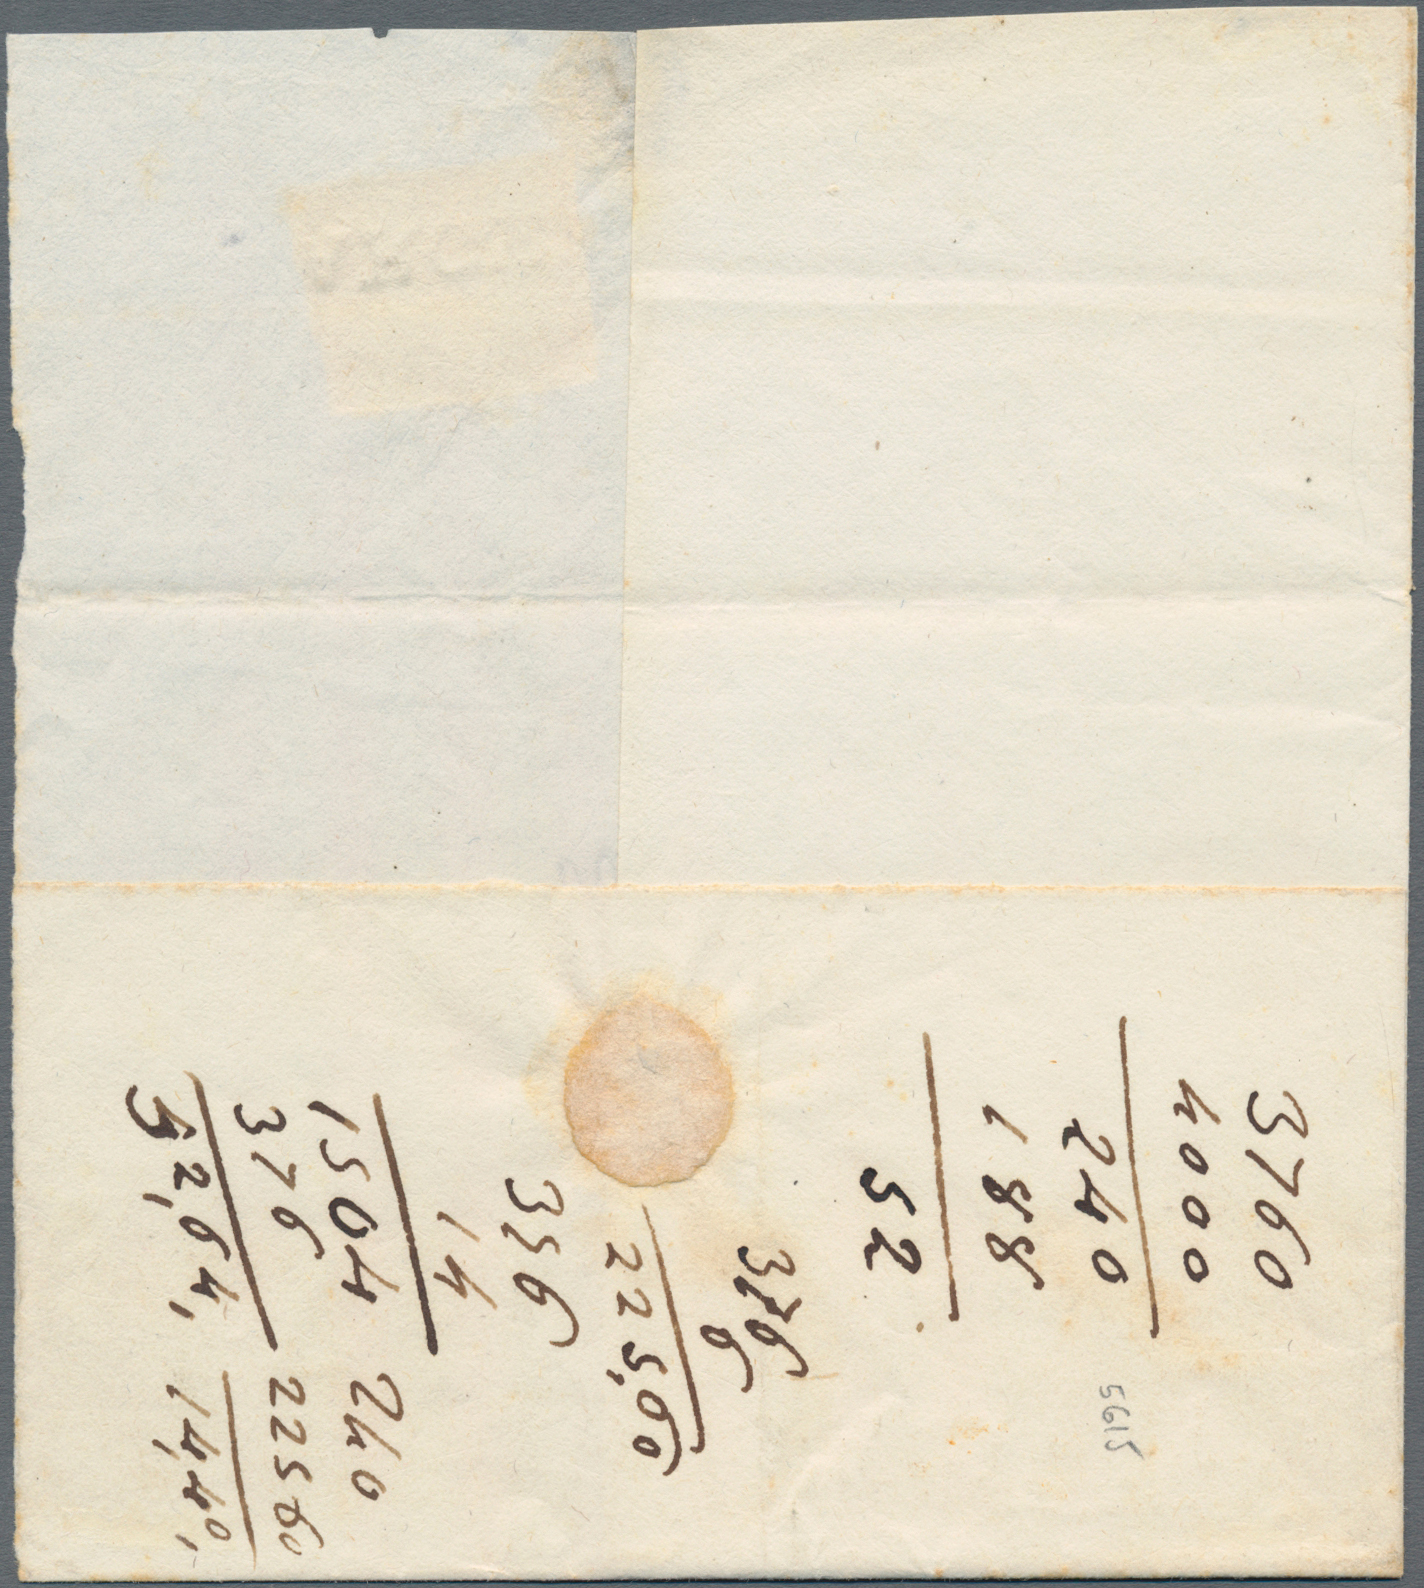 3760
4000
240
188
52
5615
376
6
22560
356
14
1504
376
5264
240
22560
1440